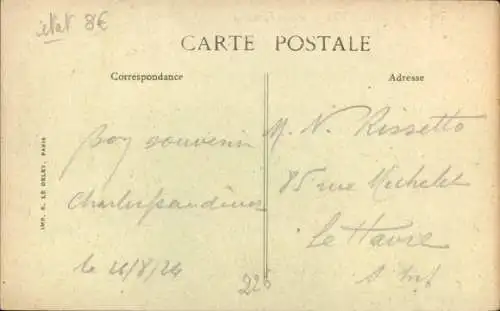 état 8€
CARTE POSTALE
Correspondance
Adresse
Bon souvenir
le 26/8/24
M. N. Rissetto
85 rue Michelet
Le Havre
S. Inf
226
IMP. E. LE DELEY, PARIS